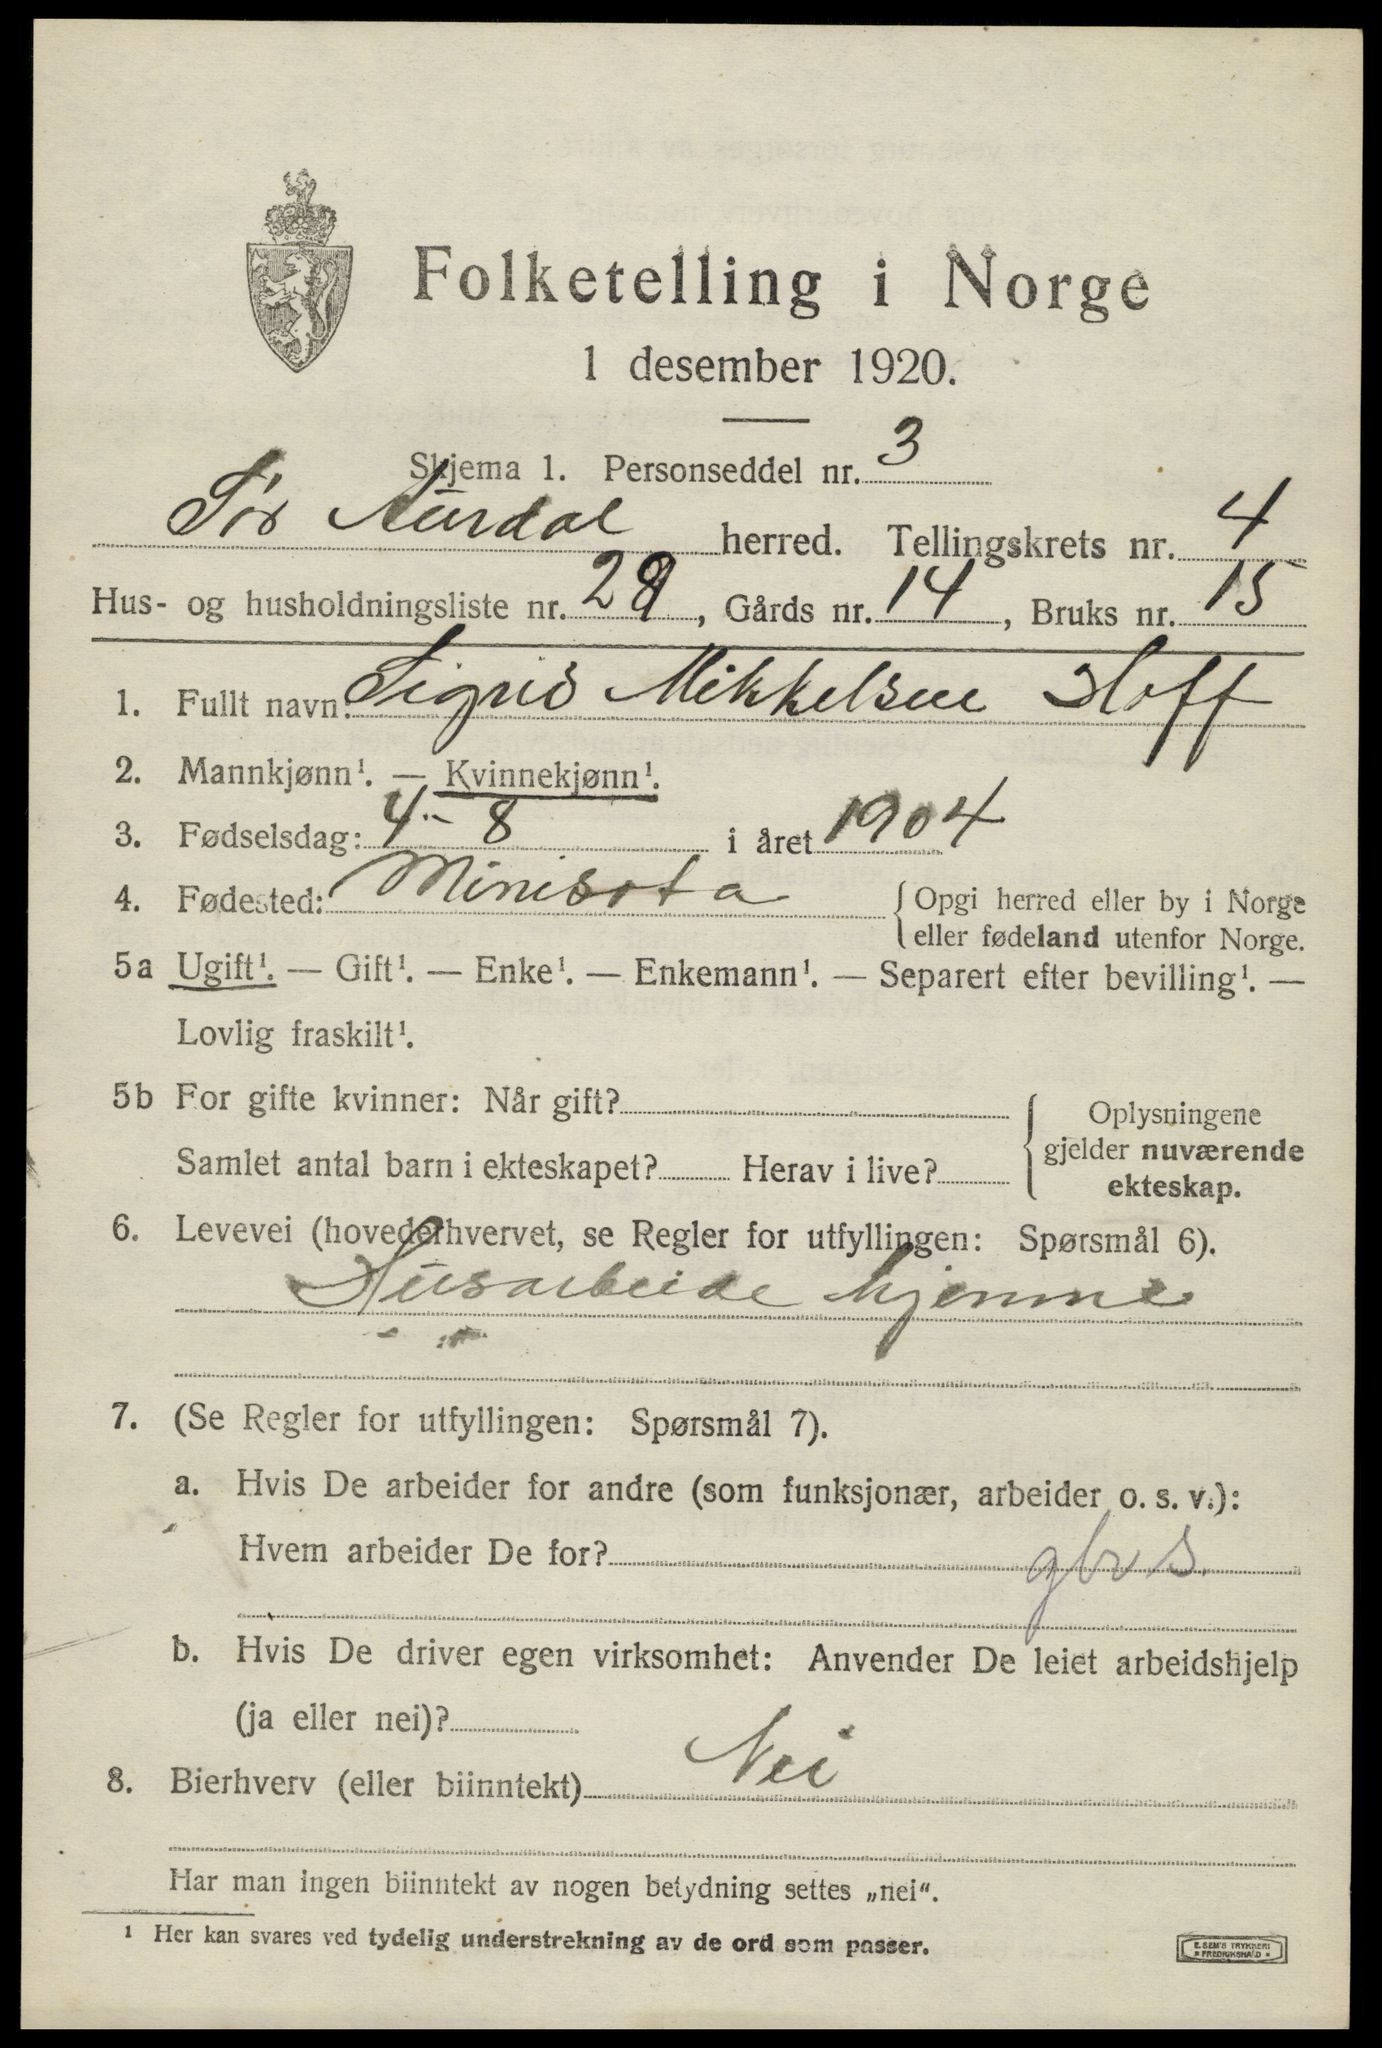 Folketelling i Norge
1 desember 1920.
Skjema 1. Personseddel nr. 3
Sør Aurdal herred. Tellingskrets nr. 4
Hus- og husholdningsliste nr. 29, Gårds nr. 14, Bruks nr. 15
1. Fullt navn: Sigrid Mikkelsen Hoff
2. Mannkjønn¹. — Kvinnekjønn¹.
3. Fødselsdag: 4 - 8 i året 1904
4. Fødested: Minisota { Opgi herred eller by i Norge
eller fødeland utenfor Norge.
5a Ugift¹. — Gift¹. — Enke¹. — Enkemann¹. — Separert efter bevilling¹. —
Lovlig fraskilt¹.
5b For gifte kvinner: Når gift? { Oplysningene
gjelder nuværende
Samlet antal barn i ekteskapet? Herav i live?
ekteskap.
6. Levevei (hovederhvervet, se Regler for utfyllingen: Spørsmål 6).
Husarbeide hjemme
7. (Se Regler for utfyllingen: Spørsmål 7).
a. Hvis De arbeider for andre (som funksjonær, arbeider o. s. v.):
Hvem arbeider De for? gbrs.
b. Hvis De driver egen virksomhet: Anvender De leiet arbeidshjelp
(ja eller nei)?
8. Bierhverv (eller biinntekt) Nei
Har man ingen biinntekt av nogen betydning settes „nei“.
¹ Her kan svares ved tydelig understrekning av de ord som passer.
E. SEM'S TRYKKERI
* FREDRIKSHALD *